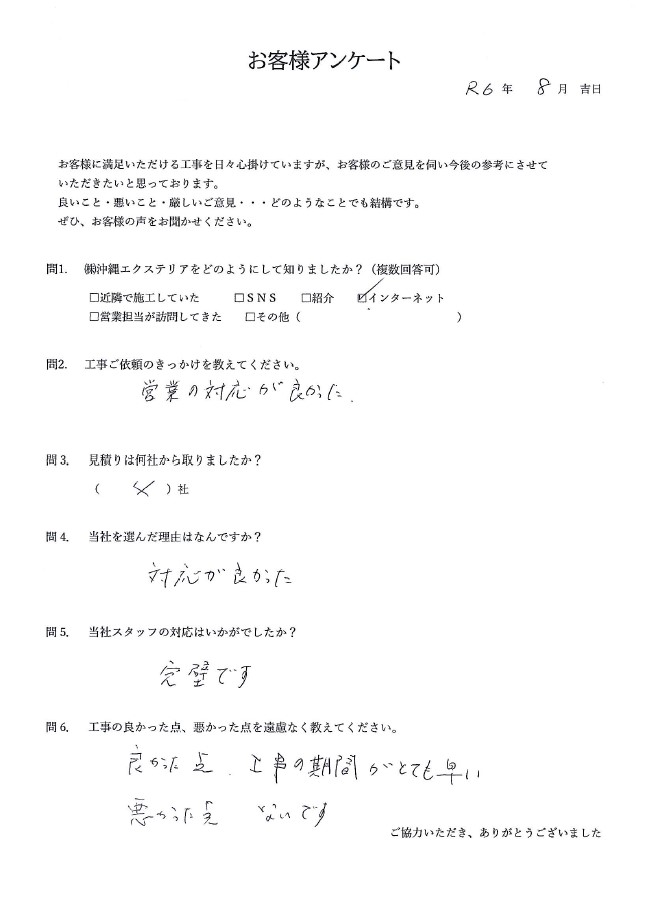 お客様アンケート
R6年 8月 吉日
お客様に満足いただける工事を日々心掛けていますが、お客様のご意見を伺い今後の参考にさせて
いただきたいと思っております。
良いこと・悪いこと・厳しいご意見・・・どのようなことでも結構です。
ぜひ、お客様の声をお聞かせください。
問1. ㈱沖縄エクステリアをどのようにして知りましたか？（複数回答可）
□近隣で施工していた □SNS □紹介 ☑インターネット
□営業担当が訪問してきた □その他（ ）
問2. 工事ご依頼のきっかけを教えてください。
営業の対応が良かった.
問3. 見積りは何社から取りましたか？
（ ）社
問4. 当社を選んだ理由はなんですか？
対応が良かった
問5. 当社スタッフの対応はいかがでしたか？
完璧です
問6. 工事の良かった点、悪かった点を遠慮なく教えてください。
良かった点. 工事の期間がとても早い
悪かった点 ないです
ご協力いただき、ありがとうございました